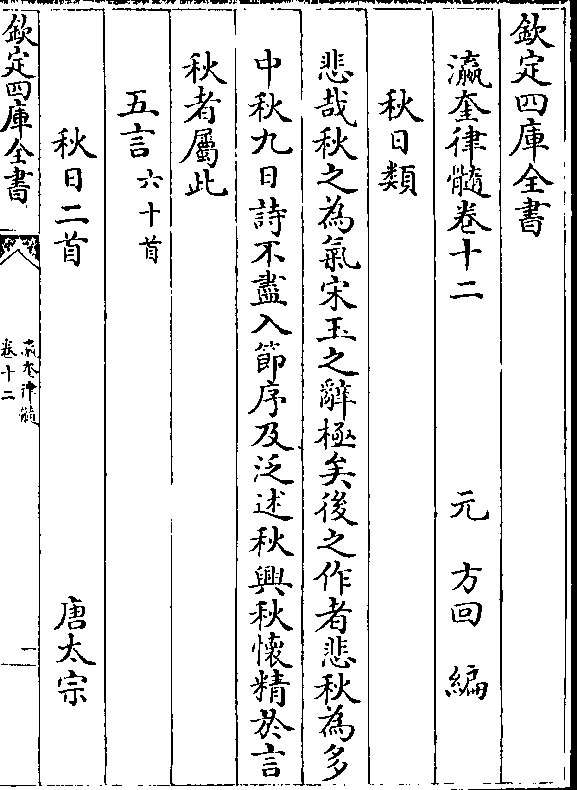 欽定四庫全書
瀛奎律髓卷十二
元 方回 編
秋日類
悲哉秋之為氣宋玉之辭極矣後之作者悲秋為多
中秋九日詩不盡入節序及泛述秋興秋懷精於言
秋者屬此
五言六十首
秋日二首
唐太宗
欽定四庫全書
瀛奎律髓
卷十二
一